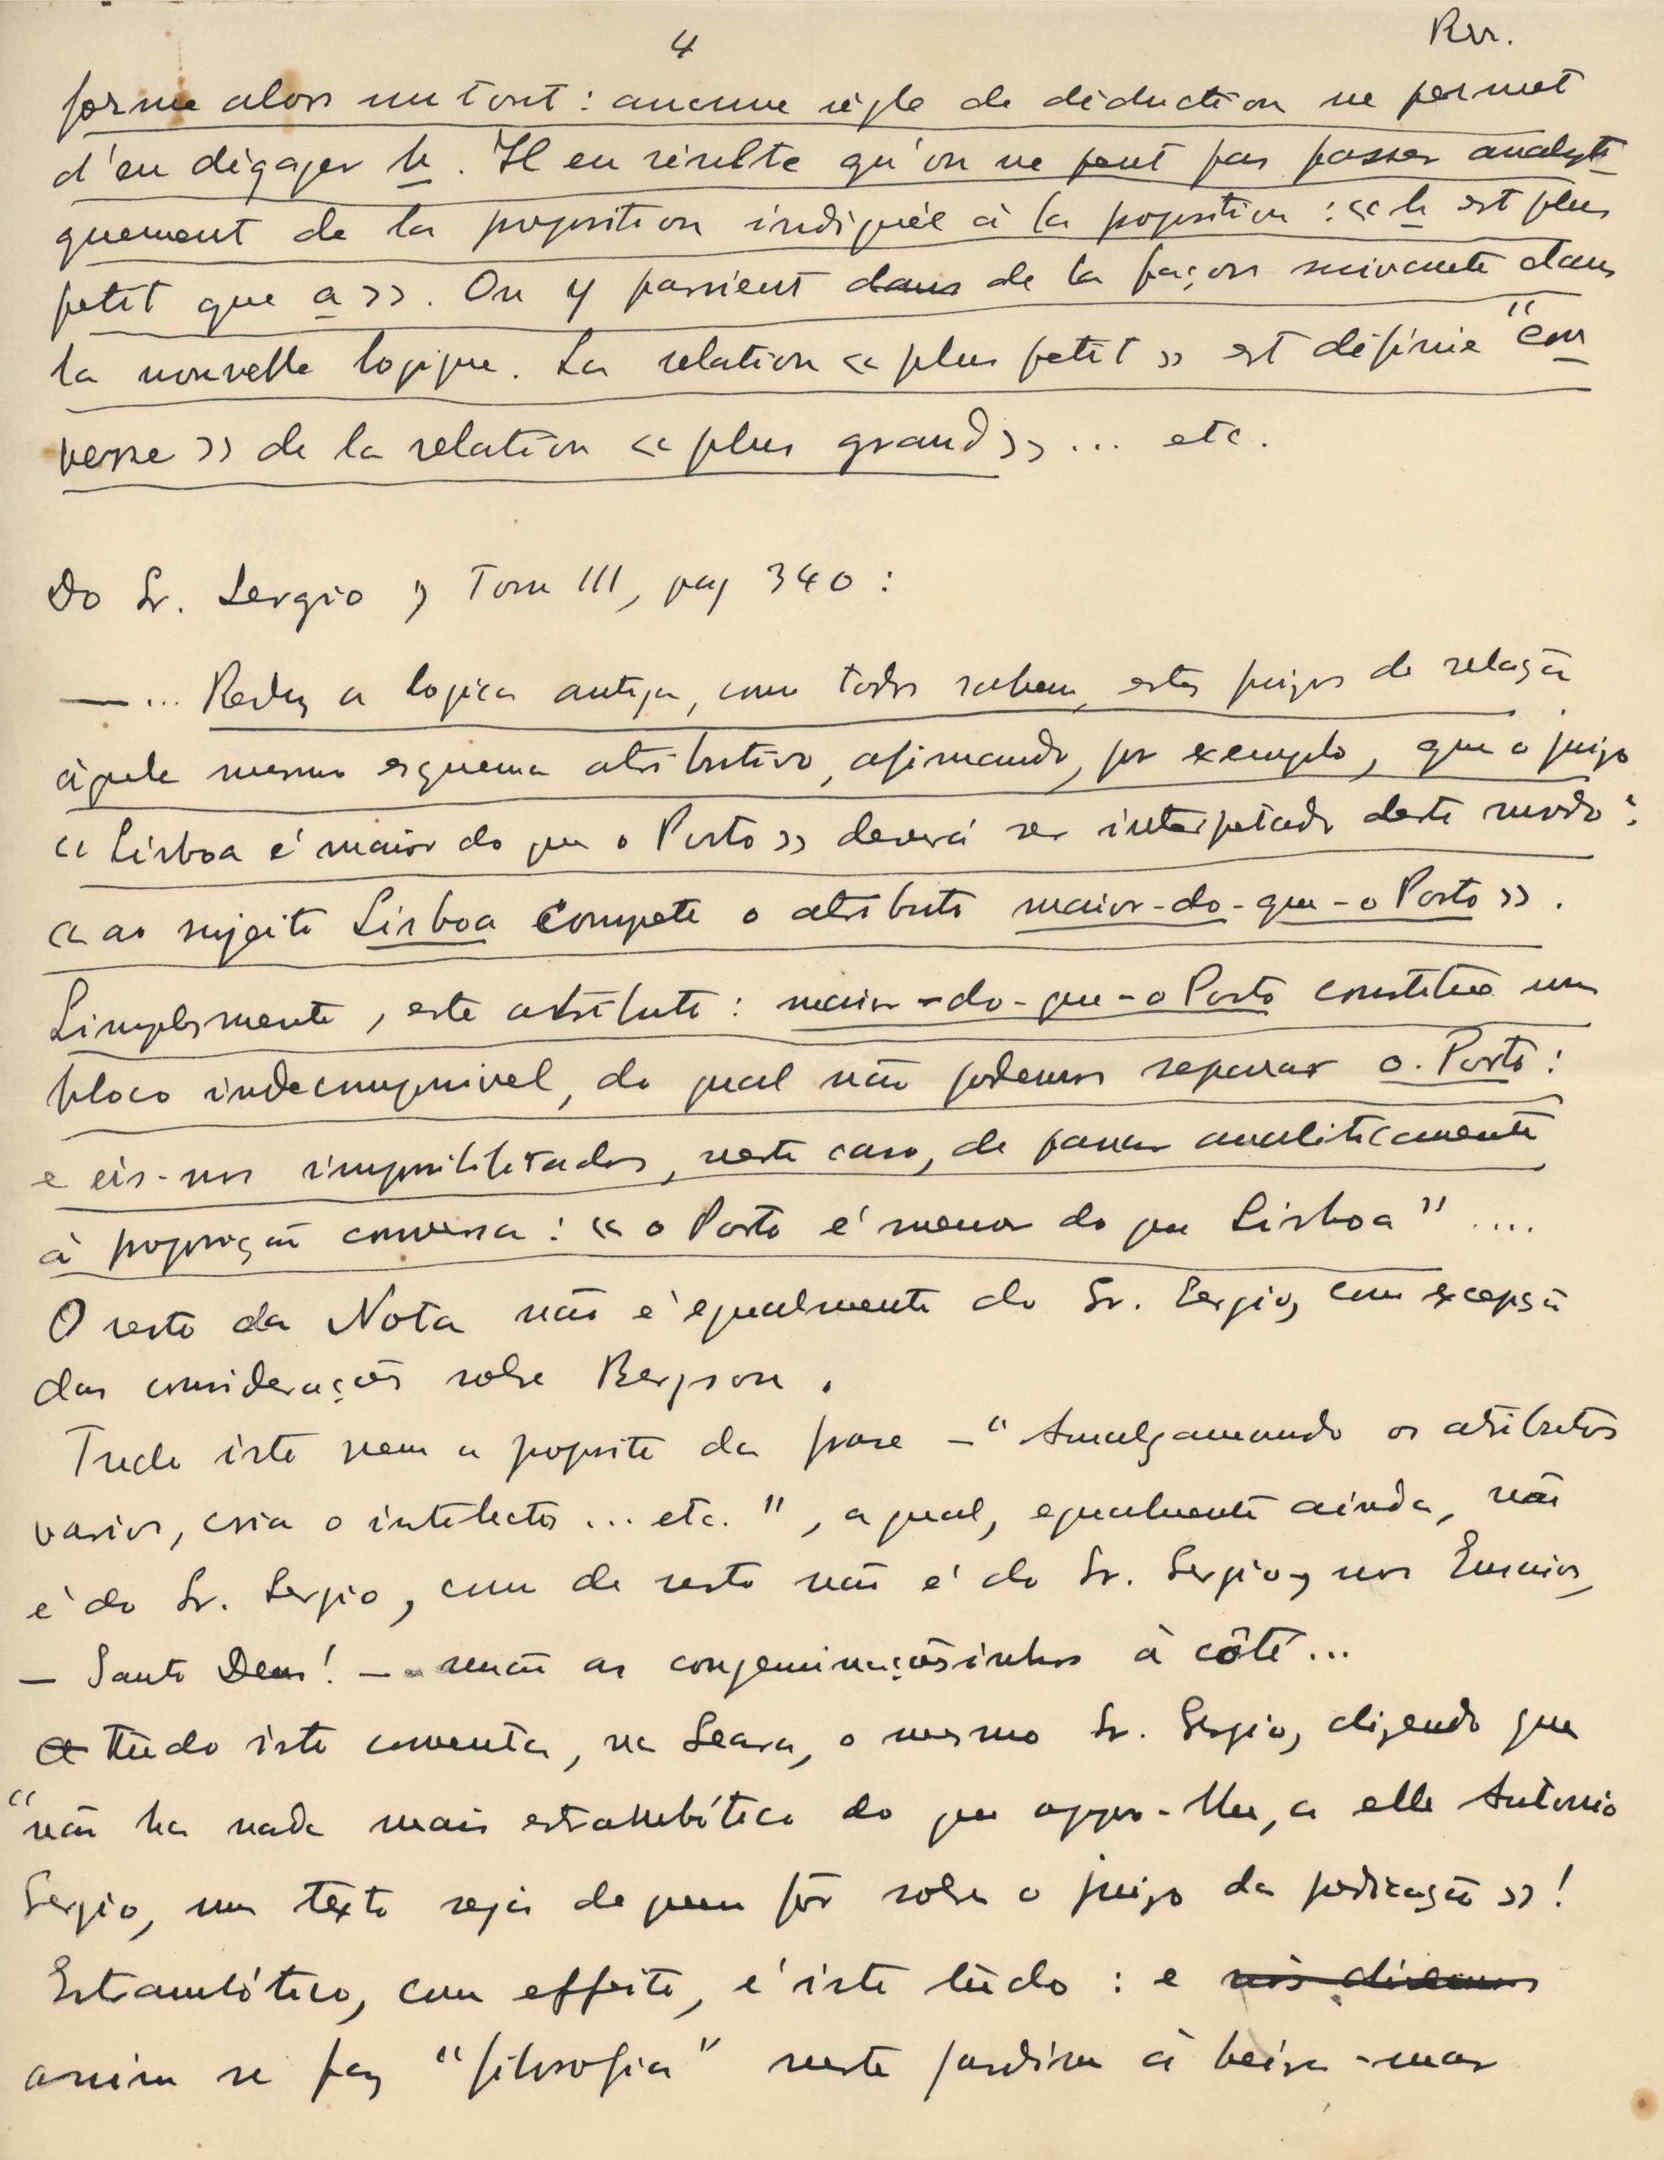 4
Rvr.
forme alors un tout : aucune règle de déduction ne permet
d'en dégager b. Il en résulte qu'on ne peut pas passer analyti-
quement de la proposition indiquée à la proposition : «b est plus
petit que a». On y parvient dans de la façon suivante dans
la nouvelle logique. La relation «plus petit» est définie "con
verse» de la relation «plus grand»... etc.
Do Sr. Sergio, Tomo III, pag 340 :
—... Reduz a logica antiga, como todos sabem, estes juizos de relação
àquele mesmo esquema atributivo, afirmando, por exemplo, que o juizo
«Lisboa é maior do que o Porto» deverá ser interpretado deste modo :
«ao sujeito Lisboa compete o atributo maior-do-que-o Porto».
Simplesmente, este atributo : maior-do-que-o Porto constitue um
bloco indecomponivel, do qual não podemos separar o Porto :
e eis-nos impossibilitados, neste caso, de passar analiticamente
à proposição conversa : «o Porto é menor do que Lisboa" ....
O resto da Nota não é egualmente do Sr. Sergio, com excepção
das considerações sobre Bergson.
Tudo isto vem a proposito da frase —"Amalgamando os atributos
varios, cria o intelecto ... etc.", a qual, egualmente ainda, não
é do Sr. Sergio, como de resto não é do Sr. Sergio, nos Ensaios,
— Santo Deus! — senão as congeminaçõesinhas à côté...
A tudo isto comenta, na Seara, o mesmo Sr. Sergio, dizendo que
"não ha nada mais estrambótico do que oppor-lhe, a elle Antonio
Sergio, um texto seja de quem fôr sobre o juizo da predicação»!
Estrambótico, com effeito, é isto tudo : e nós dizemos
assim se faz "filosofia" neste jardim à beira-mar